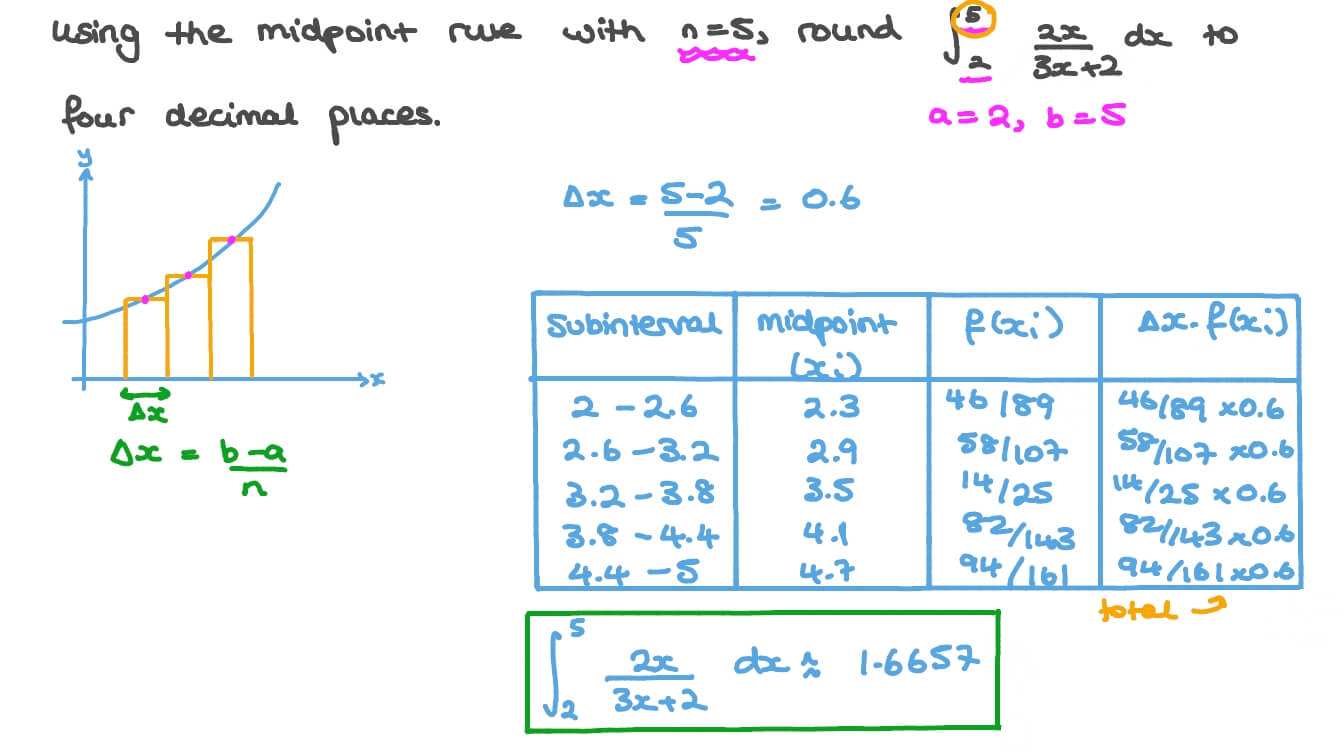 using the midpoint rule with n=5, round ∫₂⁵ 2x/(3x+2) dx to
four decimal places.
a=2, b=5
y
x
Δx
Δx = (b-a)/n
Δx = (5-2)/5 = 0.6
Subinterval midpoint (xᵢ) f(xᵢ) Δx·f(xᵢ)
2 - 2.6 2.3 46/89 46/89 ×0.6
2.6 - 3.2 2.9 58/107 58/107 ×0.6
3.2 - 3.8 3.5 14/25 14/25 ×0.6
3.8 - 4.4 4.1 82/143 82/143 ×0.6
4.4 - 5 4.7 94/161 94/161 ×0.6
total
∫₂⁵ 2x/(3x+2) dx ≈ 1.6657